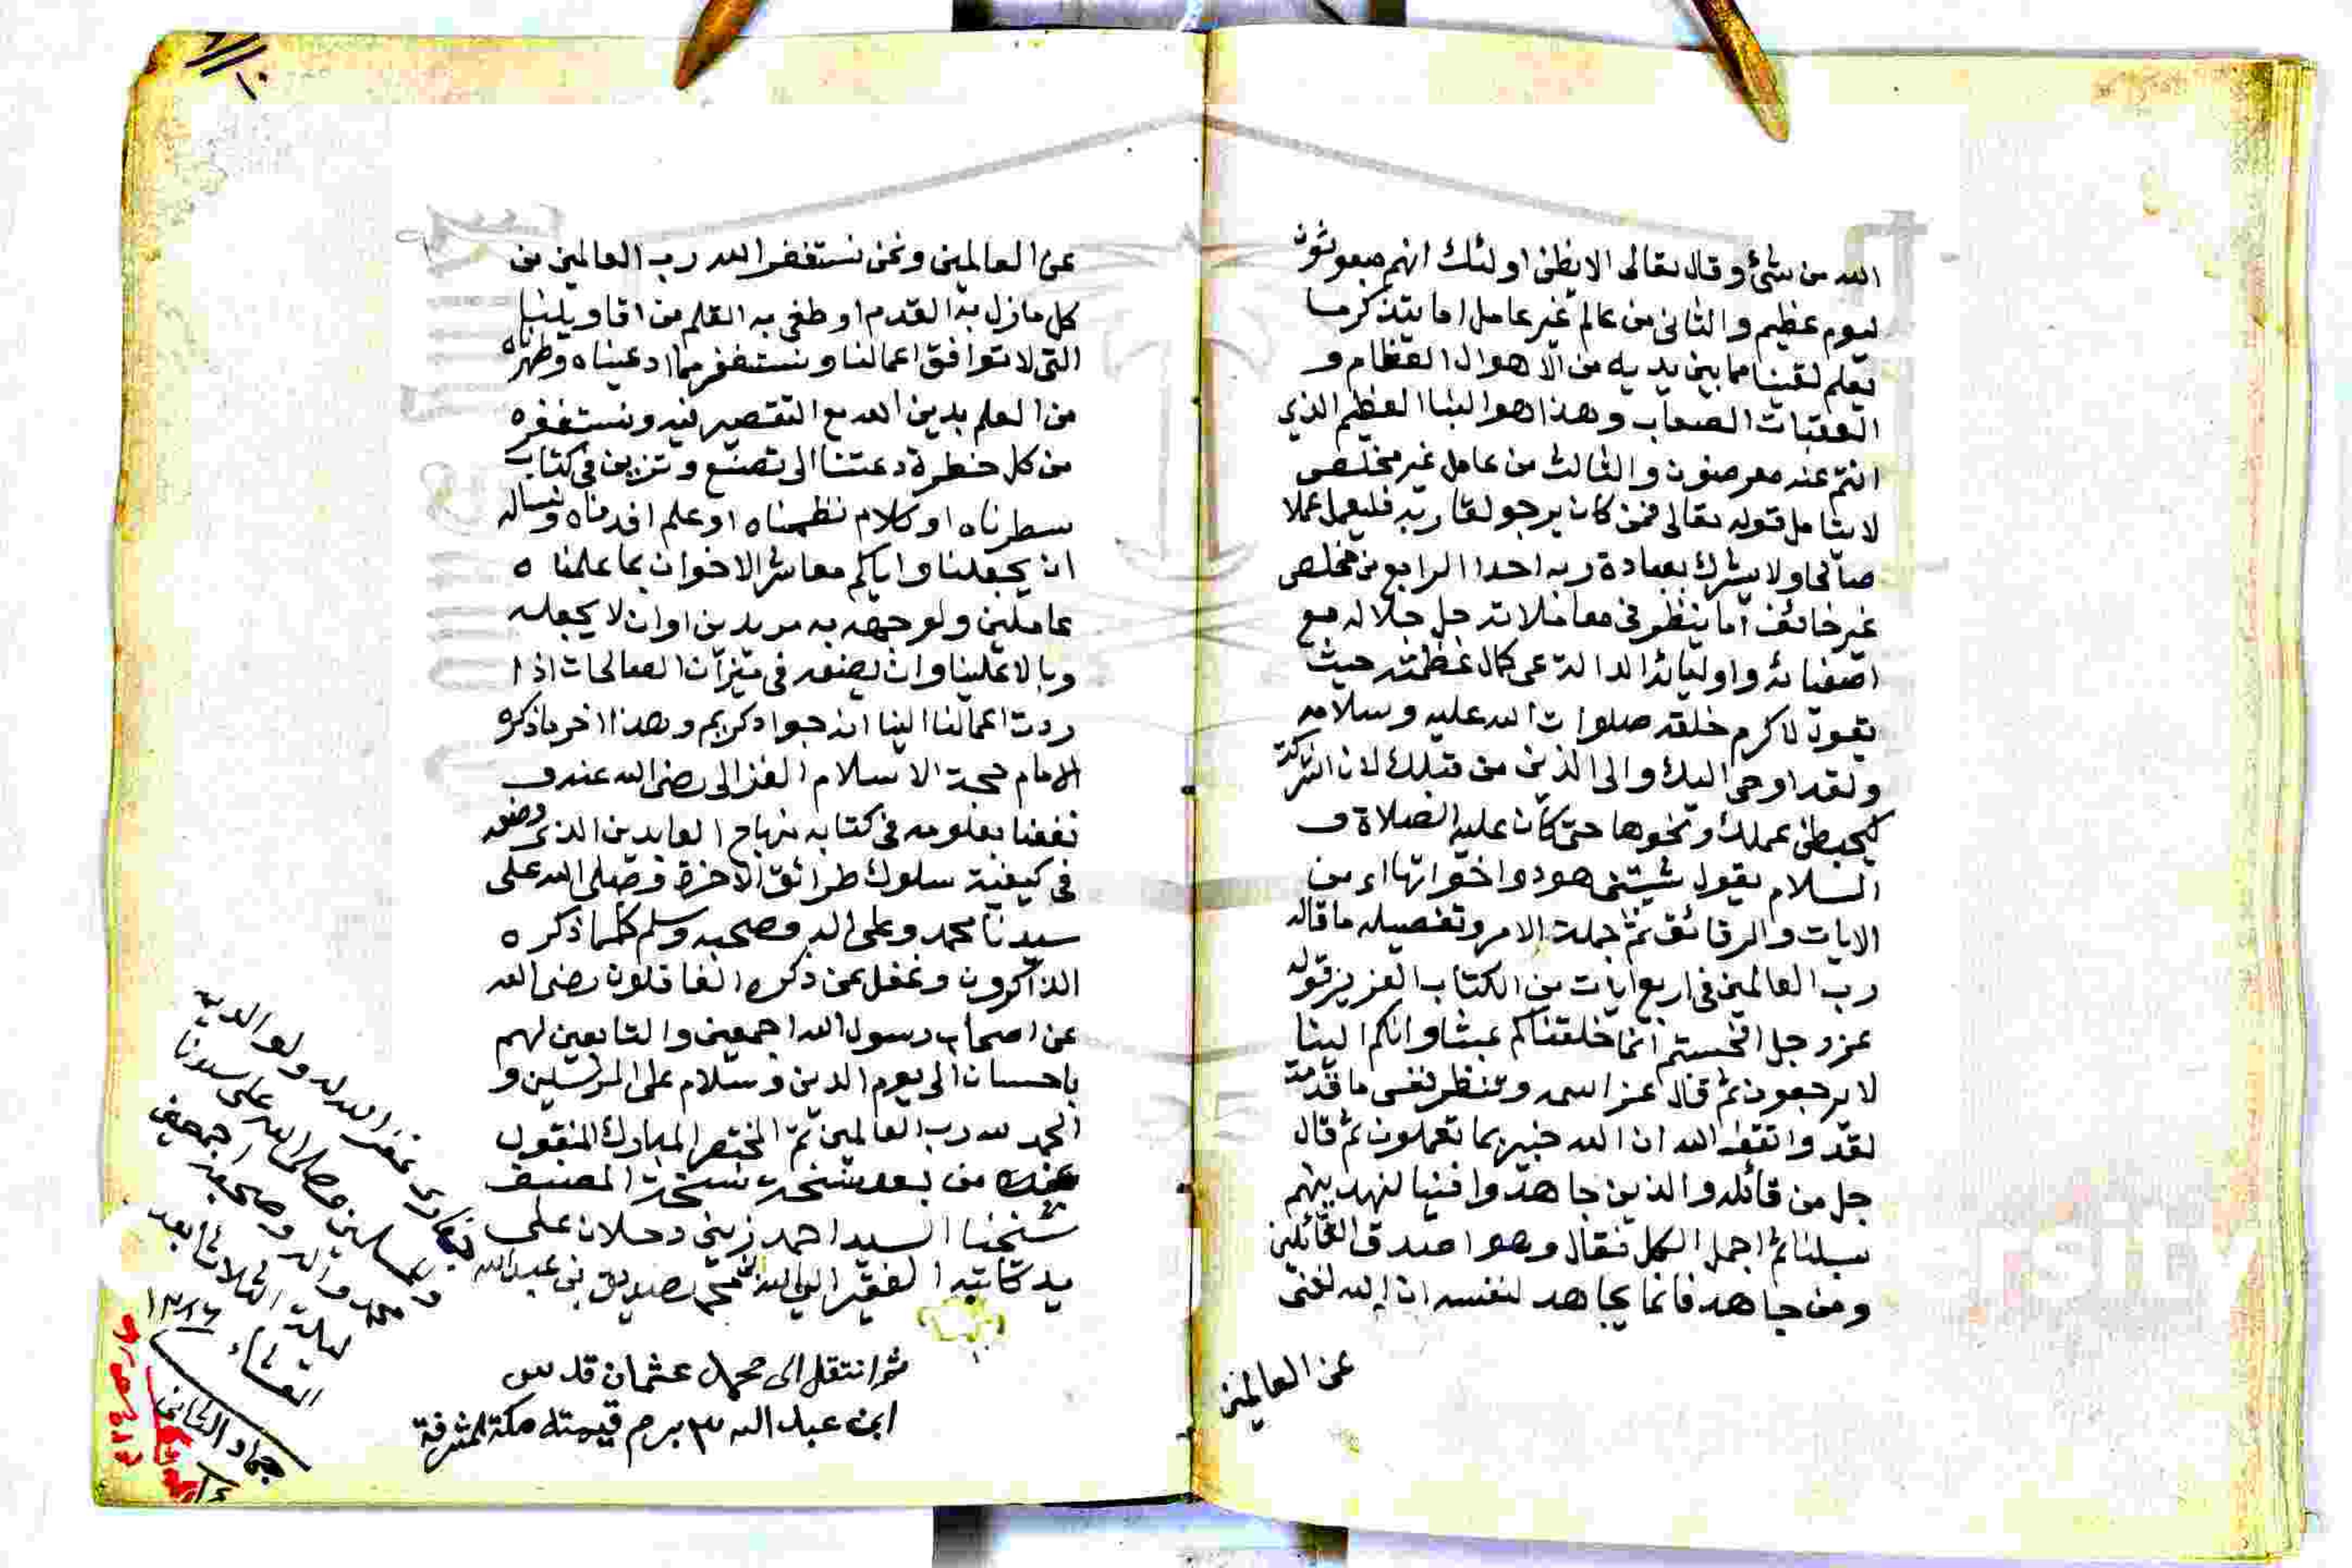 الله من شئ وقال تعالى الا يظن اولئك انهم مبعوثون
ليوم عظيم والثانى من عالم غير عامل اما يتذكر ما
يعلم لقينا مما بين يديه من الاهوال العظام و
العقبات الصعاب وهذا هو النبا العظيم الذي
انتم عنه معرضون والثالث من عامل غير مخلص
لا يتامل قوله تعالى فمن كان يرجو لقا ربه فليعمل عملا
صالحا ولا يشرك بعبادة ربه احدا الرابع من مخلص
غير خائف اما ينظر فى معاملاته جل جلاله مع
اصفيائه واوليائه الدالة على كمال عظمته حيث
يقول لاكرم خلقه صلوات الله عليه وسلامه
ولقد اوحى اليك والى الذين من قبلك لان اشركت
ليحبطن عملك ونحوها حتى كان عليه الصلاة و
السلام يقول شيبتنى هود واخواتها اى من
الايات والرقائق ثم جملت الامر وتفصيله ما قاله
رب العالمين فى اربع ايات من الكتاب العزيز قوله
عز وجل افحسبتم انما خلقناكم عبثا وانكم الينا
لا يرجعون ثم قال عز اسمه وتنظر نفس ما قدمت
لغد واتقوا الله ان الله خبير بما تعملون ثم قال
جل من قائله والذين جاهدوا فينا لنهدينهم
سبلنا ثم اجمل الكل فقال وهو اصدق القائلين
ومن جاهد فانما يجاهد لنفسه ان الله لغنى
عن العالمين
عن العالمين ونحن نستغفر الله رب العالمين من
كل ما زل به القدم او طغى به القلم من اقاويلنا
التى لا توافق اعمالنا ونستغفر مما ادعيناه وظهرناه
من العلم بدين الله مع التقصير فيه ونستغفره
من كل خطرة دعتنا الى تصنع وتزين فى كتاب
سطرناه او كلام نظمناه او علم افدناه ونساله
ان يجعلنا واياكم معاشر الاخوان بما علمناه
عاملين ولوجهه به مريدين اوان لا يجعله
وبالا علينا وان يضعه فى ميزان الصالحات اذا
ردت اعمالنا الينا انه جواد كريم وهذا اخر ما ذكره
الامام حجة الاسلام الغزالى رضى الله عنه و
نفعنا بعلومه فى كتابه منهاج العابدين الذى وضعه
فى كيفية سلوك طرائق الاخرة وصلى الله على
سيدنا محمد وعلى اله وصحبه وسلم كلما ذكره
الذاكرون وغفل عن ذكره الغافلون رضى الله
عن اصحاب رسول الله اجمعين والتابعين لهم
باحسان الى يوم الدين وسلام على المرسلين و
الحمد لله رب العالمين تم المختصر المبارك المنقول
من بعد نسخة المصنف
شيخنا السيد احمد زينى دحلان على
يد كاتبه الفقير الى الله محمد صديق بن عبد الله
غفر الله له ولوالديه
والمسلمين وصلى الله على سيدنا
محمد واله وصحبه اجمعين
ليلة الثلاثا بعد
العشاء
جماد الثانى
ثم انتقل الى محمد عثمان قدس
ابن عبد الله قيمته مكة المشرفة